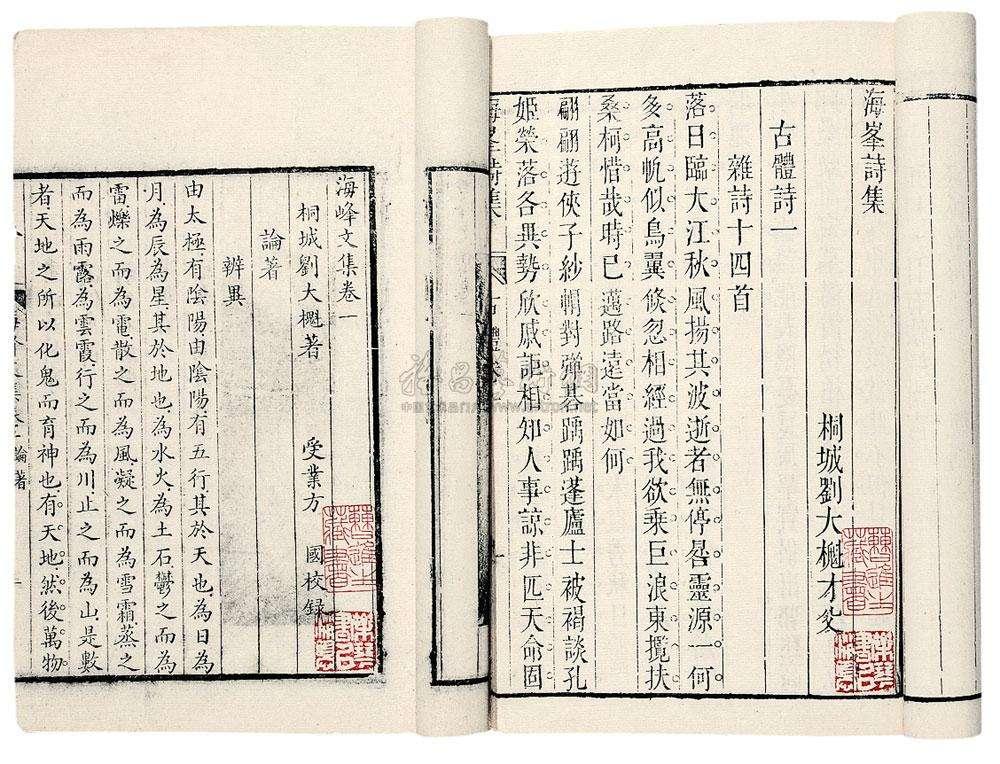 海峯詩集
桐城劉大櫆才
古體詩一
雜詩十四首
落日臨大江秋風揚其波逝者無停晷靈源一何
多高帆似鳥翼倏忽相經過我欲乘巨浪東攬扶
桑柯惜哉時已邁路遠當如何
翩翩遊俠子紗輞對彈碁踽踽蓬廬士被褐談孔
姬榮落各異勢欣戚詎相知人事諒非匹天命固
海峯詩集
海峰文集卷一
桐城劉大櫆著
受業方國校錄
論著
辨異
由太極有陰陽由陰陽有五行其於天也為日為
月為辰為星其於地也為水火為土石鬱之而為
雷爍之而為電散之而為風凝之而為雪霜蒸之
而為雨露為雲霞行之而為川止之而為山是數
者天地之所以化鬼而育神也有天地然後萬物
論著